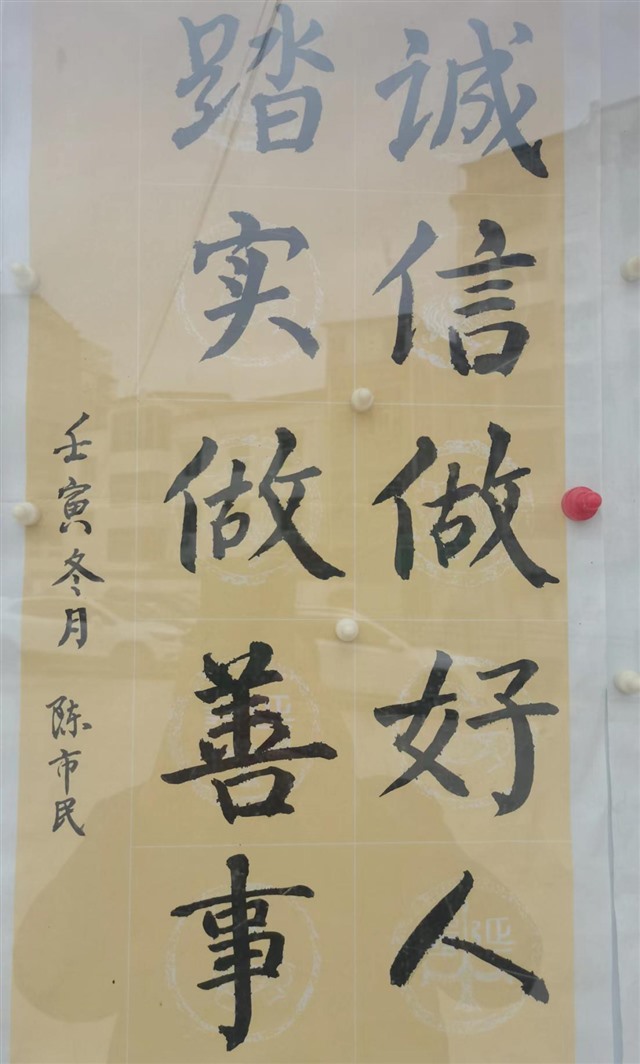 诚信做好人
踏实做善事
壬寅冬月 陈市民